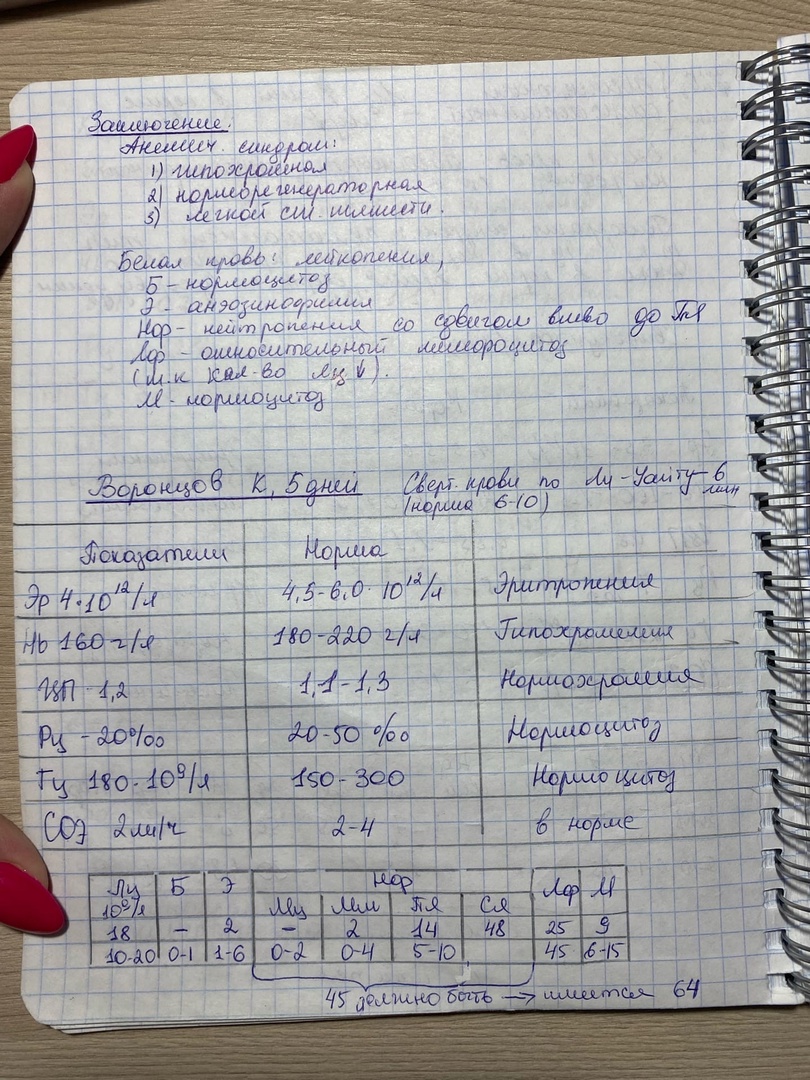 Заключение.
Анемич. синдром:
1) гипохромная
2) норморегенераторная
3) легкой ст. тяжести.
Белая кровь: лейкопения,
Б - нормоцитоз
Э - анэозинофилия
Нф - нейтропения со сдвигом влево до ПЯ
Лф - относительный лимфоцитоз
(т.к кол-во Лц ↓).
М - нормоцитоз
Воронцов К, 5 дней Сверт. крови по Ли-Уайту - 6 мин
(норма 6-10)
Показатели Норма
Эр 4·10¹²/л 4,5-6,0·10¹²/л Эритропения
Hb 160 г/л 180-220 г/л Гипохромемия
ЦП - 1,2 1,1-1,3 Нормохромия
Рц - 20‰ 20-50 ‰ Нормоцитоз
Тц 180·10⁹/л 150-300 Нормоцитоз
СОЭ 2мм/ч 2-4 в норме
Лц 10⁹/л Б Э Нф Лф М
Мц Мм ПЯ СЯ
18 - 2 - 2 14 48 25 9
10-20 0-1 1-6 0-2 0-4 5-10 45 6-15
45 должно быть → имеется 64